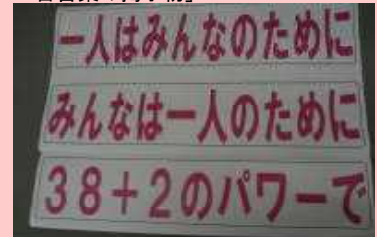 一人はみんなのために
みんなは一人のために
38+2のパワーで